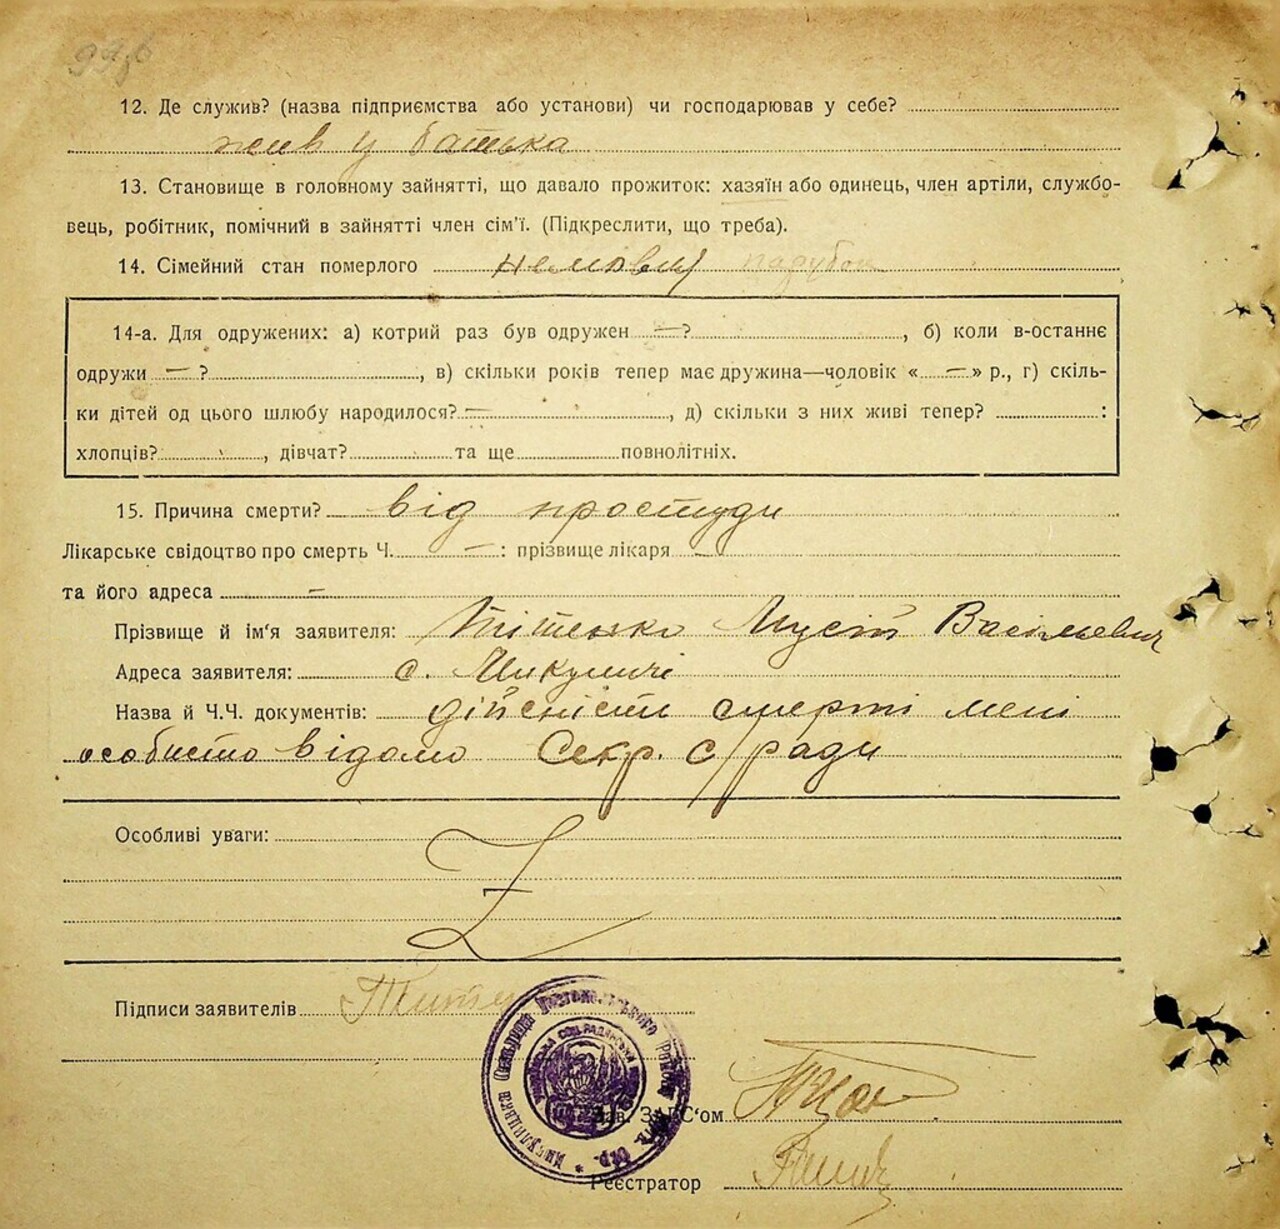 12. Де служив? (назва підприємства або установи) чи господарював у себе?
жив у батька
13. Становище в головному зайнятті, що давало прожиток: хазяїн або одинець, член артіли, службо-
вець, робітник, помічний в зайнятті член сім'ї. (Підкреслити, що треба).
14. Сімейний стан померлого парубок
14-а. Для одружених: а) котрий раз був одружен —?, б) коли в-останнє
одружи — ?, в) скільки років тепер має дружина—чоловік « — » р., г) скіль-
ки дітей од цього шлюбу народилося? —, д) скільки з них живі тепер? :
хлопців?, дівчат? та ще повнолітніх.
15. Причина смерти? від простуди
Лікарське свідоцтво про смерть Ч. — : прізвище лікаря —
та його адреса —
Прізвище й ім'я заявителя: Васільевич
Адреса заявителя: с. Микуличі
Назва й Ч.Ч. документів: дійсність смерті мені
особисто відомо Секр. с/ради
Особливі уваги:
Підписи заявителів
Зав. ЗАГС'ом
Реєстратор